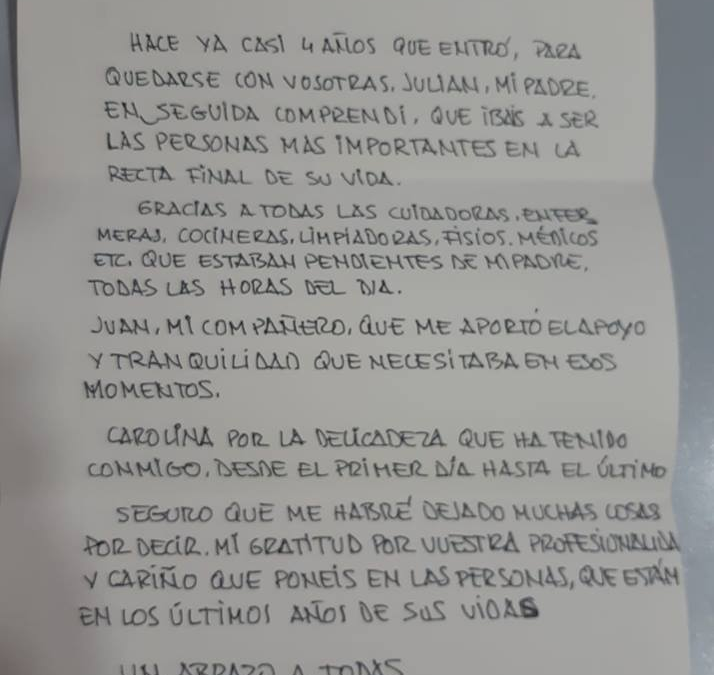 HACE YA CASI 4 AÑOS QUE ENTRÓ, PARA
QUEDARSE CON VOSOTRAS, JULIAN, MI PADRE,
EN SEGUIDA COMPRENDI, QUE IBAIS A SER
LAS PERSONAS MAS IMPORTANTES EN LA
RECTA FINAL DE SU VIDA.
GRACIAS A TODAS LAS CUIDADORAS, ENFER
MERAS, COCINERAS, LIMPIADORAS, FISIOS, MÉDICOS
ETC. QUE ESTABAN PENDIENTES DE MI PADRE,
TODAS LAS HORAS DEL DIA.
JUAN, MI COMPAÑERO, QUE ME APORTÓ EL APOYO
Y TRANQUILIDAD QUE NECESITABA EN ESOS
MOMENTOS.
CAROLINA POR LA DELICADEZA QUE HA TENIDO
CONMIGO, DESDE EL PRIMER DÍA HASTA EL ÚLTIMO
SEGURO QUE ME HABRÉ DEJADO MUCHAS COSAS
POR DECIR. MI GRATITUD POR VUESTRA PROFESIONALIDA
Y CARIÑO QUE PONEIS EN LAS PERSONAS, QUE ESTÁN
EN LOS ÚLTIMOS AÑOS DE SUS VIDAS
UN ABRAZO A TODAS